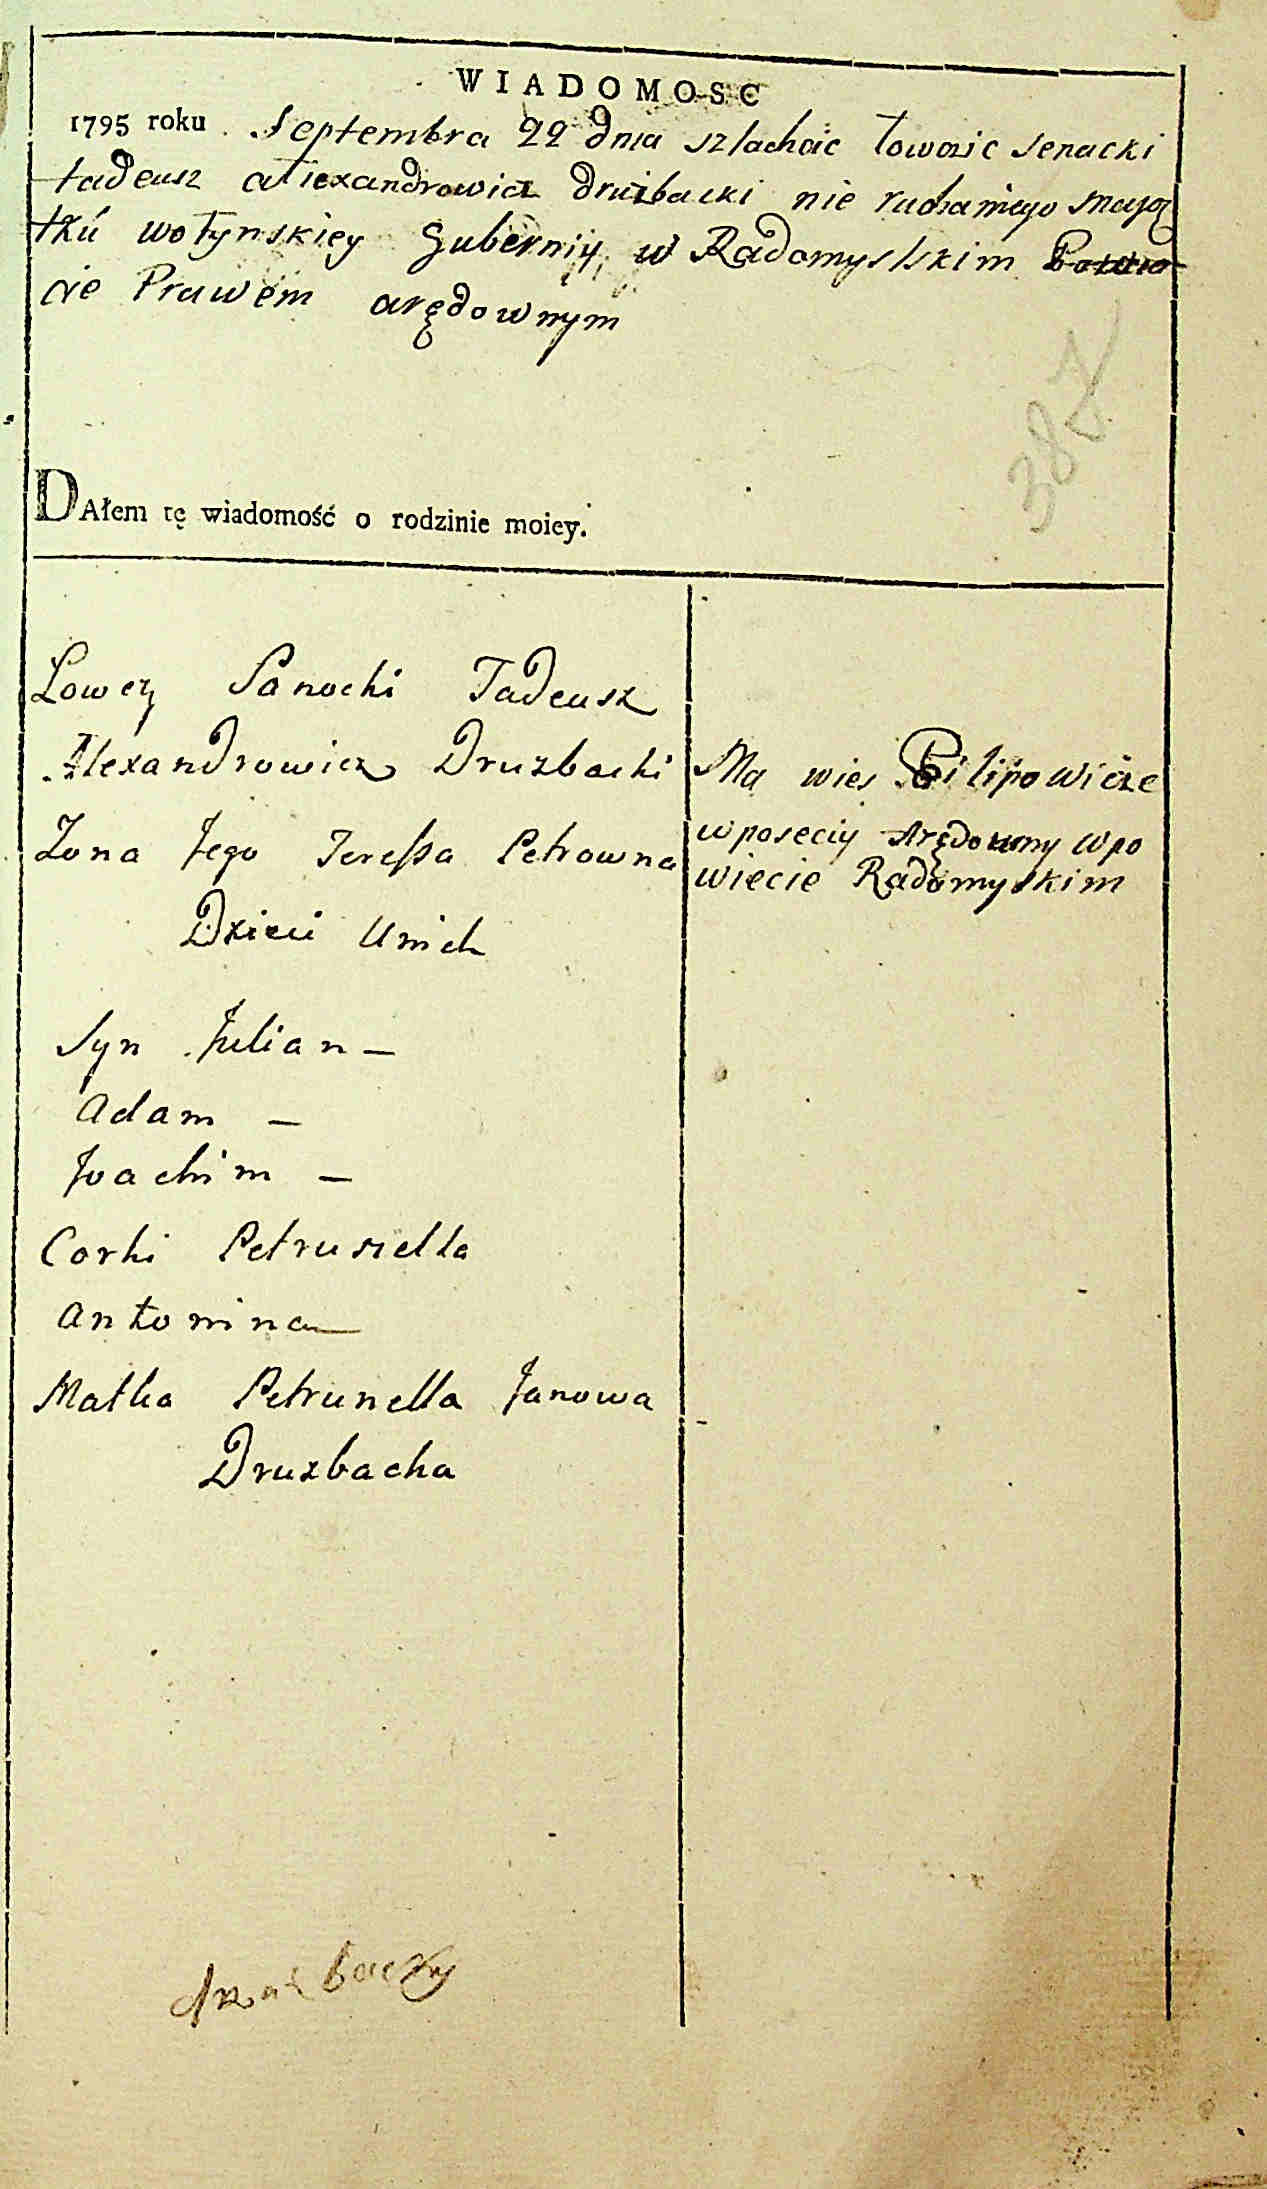 WIADOMOSC
1795 roku Septembra 22 dnia szlachcic Łowczic senacki
tadeusz alexandrowicz druzbacki nie ruchamego mają
tkú wołynskiey Gubernÿi w Radomyslskim Powie
cie Prawem arędownym
387
DAłem tę wiadomość o rodzinie moiey.
Łowczy Sanocki Tadeusz
Alexandrowicz Druzbacki
Zona Jego Teressa Petrowna
Dzieci Unich
Syn Julian —
Adam —
Joachim —
Corki Petrusiella
Antonina —
Matka Petrunella Janowa
Druzbacka
Ma wies Pilipowicze
w poseciy Arędowny w po
wiecie Radomyskim